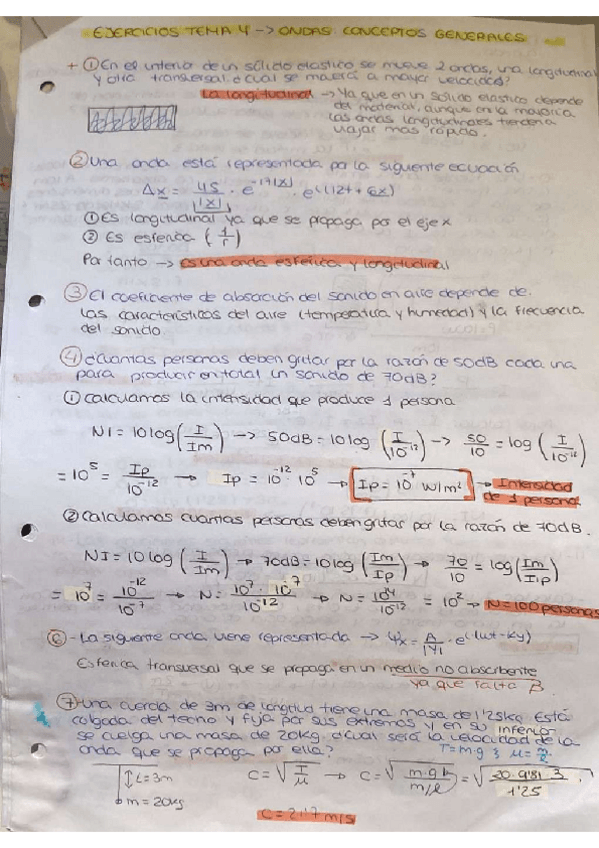 EJERCICIOS TEMA 4 -> ONDAS. CONCEPTOS GENERALES
+ ① En el interior de un sólido elastico se mueve 2 ondas, una longitudinal
y otra transversal. ¿cual se moverá a mayor velocidad?
La longitudinal -> Ya que en un sólido elastico depende
del material, aunque en la mayoría
las ondas longitudinales tienden a
viajar mas rápido.
② Una onda está representada por la siguiente ecuación
Δx = 45/|x| · e^-17|x| · e^i(12t + 6x)
① Es longitudinal ya que se propaga por el eje x
② Es esferica (1/r)
Por tanto -> es una onda esférica y longitudinal
③ El coeficiente de absorción del sonido en aire depende de
las características del aire (temperatura y humedad) y la frecuencia
del sonido
④ ¿Cuantas personas deben gritar por la razón de 50dB cada una
para producir en total un sonido de 70dB?
① Calculamos la intensidad que produce 1 persona
NI = 10log(I/Im) -> 50dB = 10log(I/10^-12) -> 50/10 = log(I/10^-12)
= 10^5 = Ip/10^-12 -> Ip = 10^-12 · 10^5 -> Ip = 10^-7 W/m² -> Intensidad
de 1 persona
② Calculamos cuantas personas deben gritar por la razón de 70dB.
NI = 10log(I/Im) -> 70dB = 10log(Im/Ip) -> 70/10 = log(Im/Ip)
= 10^7 = 10^-12/10^-7 -> N = 10^7 · 10^7/10^12 -> N = 10^4/10^-12 = 10^2 -> N = 100 personas
⑥ - La siguiente onda viene representada -> Ψx = A/|Y| · e^i(wt - ky)
Esferica transversal que se propaga en un medio no absorbente
ya que falta β
⑦ Una cuerda de 3m de longitud tiene una masa de 1'25kg. Está
colgada del techo y fija por sus extremos y en su inferior
se cuelga una masa de 20kg. ¿cual será la velocidad de la
onda que se propaga por ella? T = m·g ; μ = m/l
L = 3m
m = 20kg
C = √(T/μ) -> C = √(m·g/(m/l)) = √(20·9'81·3/1'25)
C = 21'7 m/s